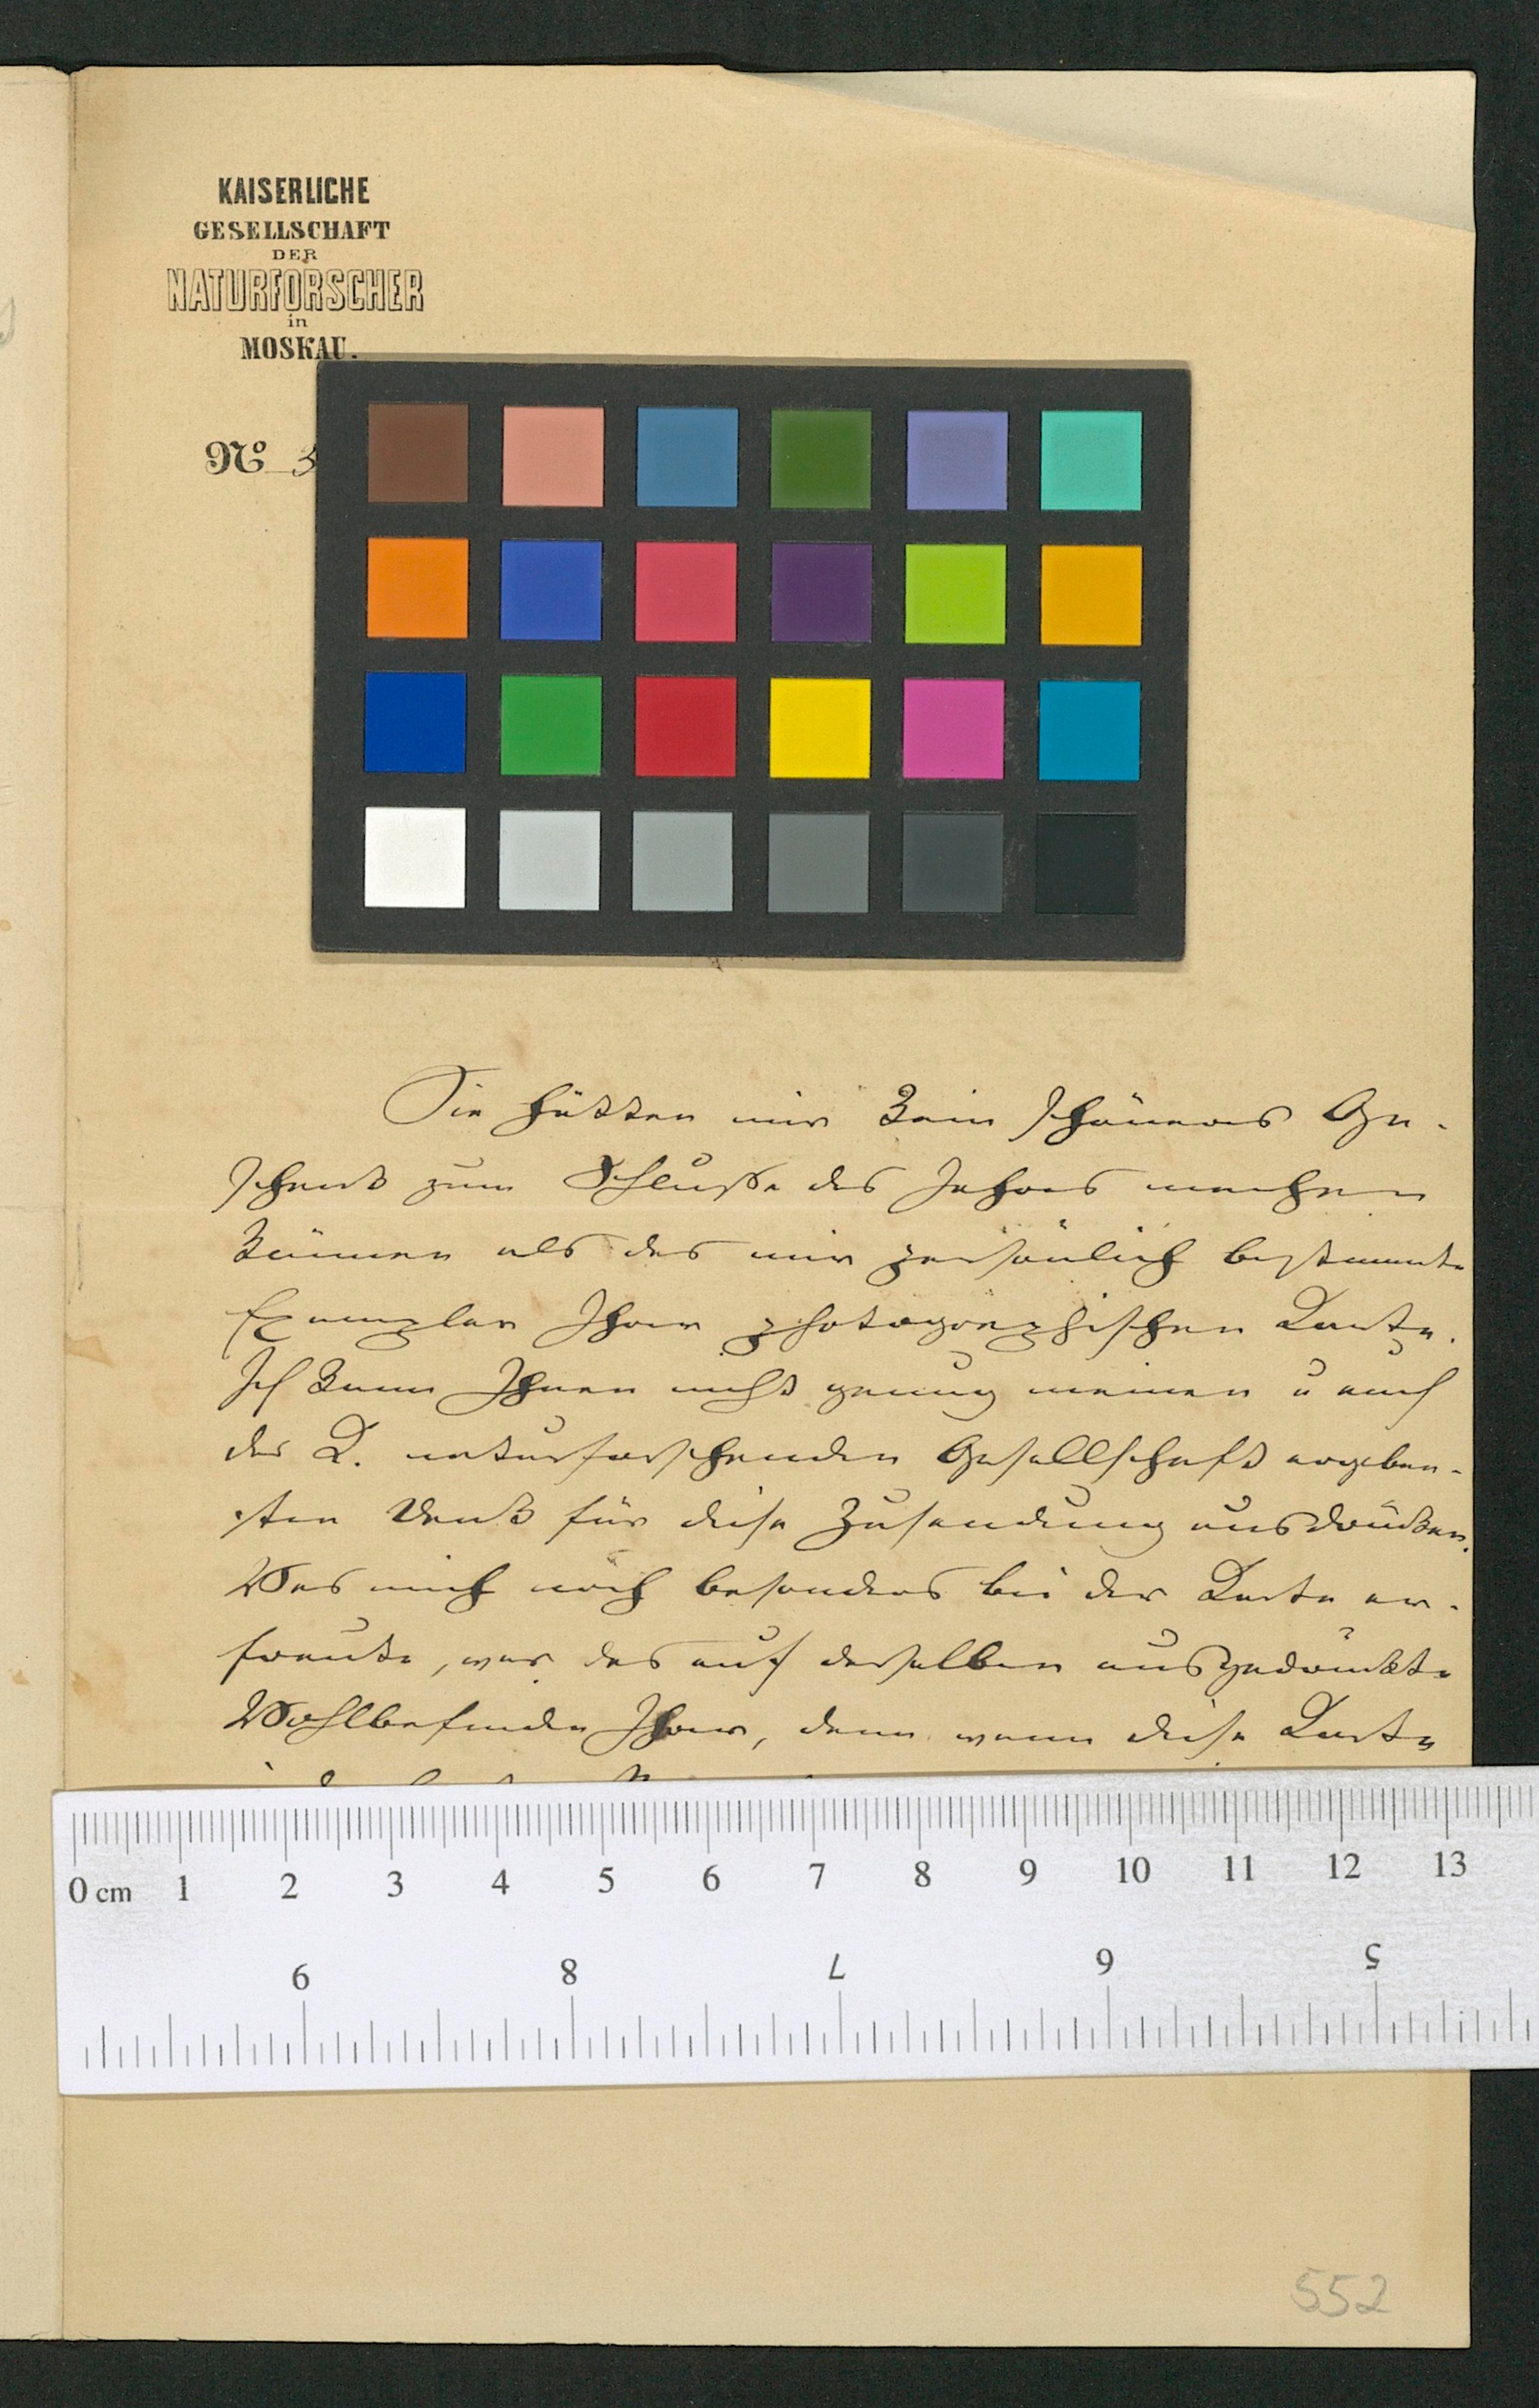 KAISERLICHE
GESELLSCHAFT
DER
NATURFORSCHER
in
MOSKAU.
No 3
Sie hätten mir kein schöneres Ge-
schenk zum Schluße des Jahres machen
können als das mir persönlich bestimmte
Exemplar Ihrer photographischen Karte.
Ich kann Ihnen nicht genug meinen u auch
der K. naturforschenden Gesellschaft ergeben-
sten Dank für diese Zusendung ausdrücken.
Was mich noch besonders bei der Karte er-
freute, war das auf derselben ausgedrückte
Wohlbefinden Ihrer, denn wenn diese Karte
0 cm 1 2 3 4 5 6 7 8 9 10 11 12 13
9 8 7 6 5
552